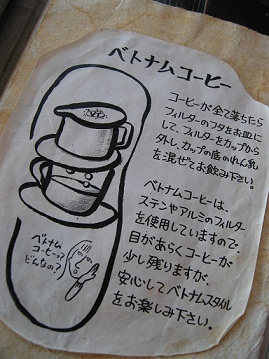 ベトナムコーヒー
コーヒーが全て落ちたら
フィルターのフタをお皿に
して、フィルターをカップから
外し、カップの底のれん乳
を混ぜてお飲み下さい。
ベトナムコーヒーは、
ステンやアルミのフィルター
を使用していますので、
目があらくコーヒーが
少し残りますが、
安心してベトナムスタイル
をお楽しみ下さい。
ベトナム
コーヒーって
どんなの?